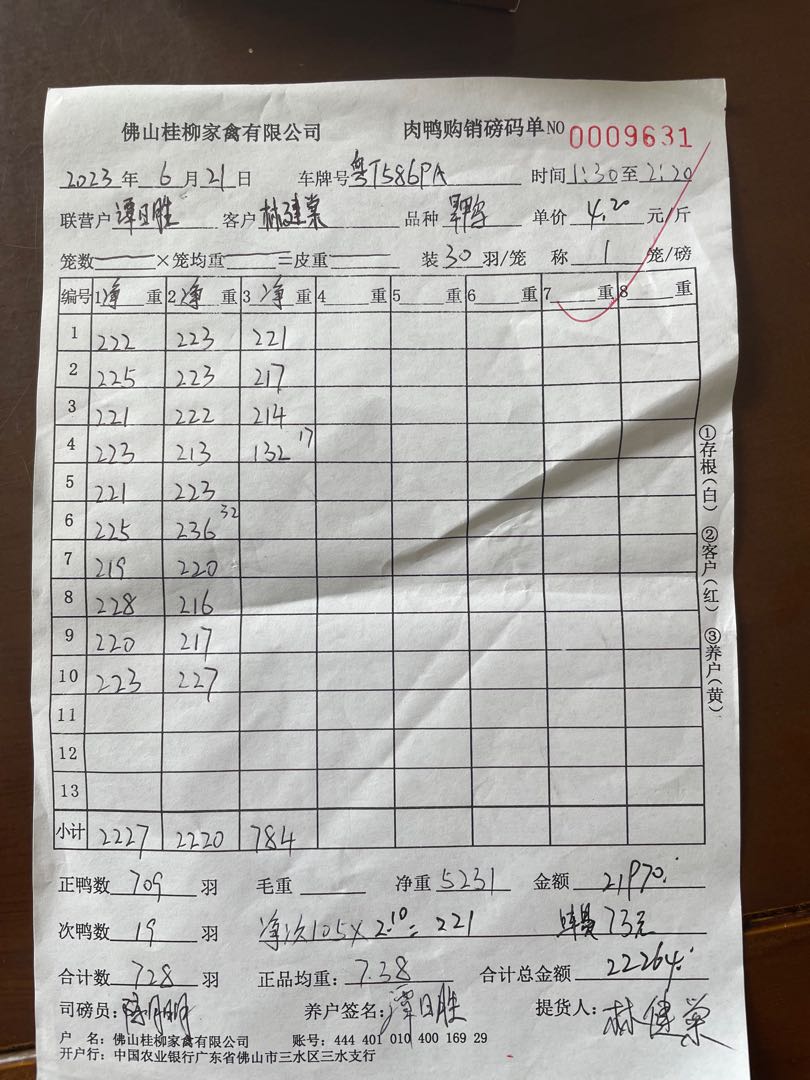 佛山桂柳家禽有限公司 肉鸭购销磅码单 NO 0009631
2023年 6月21日 车牌号 粤T586PA 时间 1:30 至 2:20
联营户 谭日胜 客户 林建棠 品种 单价 4.20 元/斤
笼数 ×笼均重 =皮重 装 30 羽/笼 称 1 笼/磅
编号 1 净 重 2 净 重 3 净 重 4 重 5 重 6 重 7 重 8 重
1 222 223 221
2 225 223 217
3 221 222 214
4 223 213 132 17
5 221 223
6 225 236 32
7 219 220
8 228 216
9 220 217
10 223 227
11
12
13
小计 2227 2220 784
正鸭数 709 羽 毛重 净重 5231 金额 21970.
次鸭数 19 羽 净次105×2.10=221 73元
合计数 728 羽 正品均重: 7.38 合计总金额 22264.
司磅员: 养户签名: 谭日胜 提货人: 林健棠
户 名: 佛山桂柳家禽有限公司 账号: 444 401 010 400 169 29
开户行: 中国农业银行广东省佛山市三水区三水支行
①存根(白) ②客户(红) ③养户(黄)